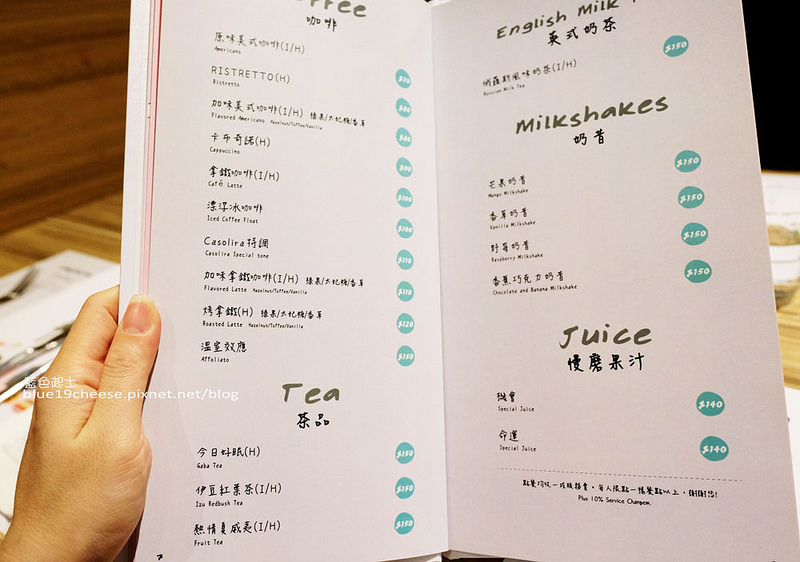 咖啡
原味美式咖啡(I/H)
Americano
RISTRETTO(H)
Ristretto
加味美式咖啡(I/H) 榛果/太妃糖/香草
Flavored Americano Hazelnut/Toffee/Vanilla
卡布奇諾(H)
Cappuccino
拿鐵咖啡(I/H)
Café Latte
$100
漂浮冰咖啡
Iced Coffee Float
$100
Casolira特調
Casolira Special tone
$110
加味拿鐵咖啡(I/H) 榛果/太妃糖/香草
Flavored Latte Hazelnut/Toffee/Vanilla
$110
烤拿鐵(H) 榛果/太妃糖/香草
Roasted Latte Hazelnut/Toffee/Vanilla
$120
溫室效應
Affoliato
$150
Tea
茶品
今日好眠(H)
Gaba Tea
$150
伊豆紅葉茶(I/H)
Izu Redbush Tea
$150
熱情夏威夷(I/H)
Fruit Tea
$150
English Milk
英式奶茶
$150
俄羅斯風味奶茶(I/H)
Russian Milk Tea
Milkshakes
奶昔
$150
芒果奶昔
Mango Milkshake
$150
香草奶昔
Vanilla Milkshake
$150
野莓奶昔
Raspberry Milkshake
$150
香蕉巧克力奶昔
Chocolate and Banana Milkshake
Juice
慢磨果汁
機會
Special Juice
$140
命運
Special Juice
$140
Plus 10% Service
藍色起士
blue19cheese.pixnet.net/blog